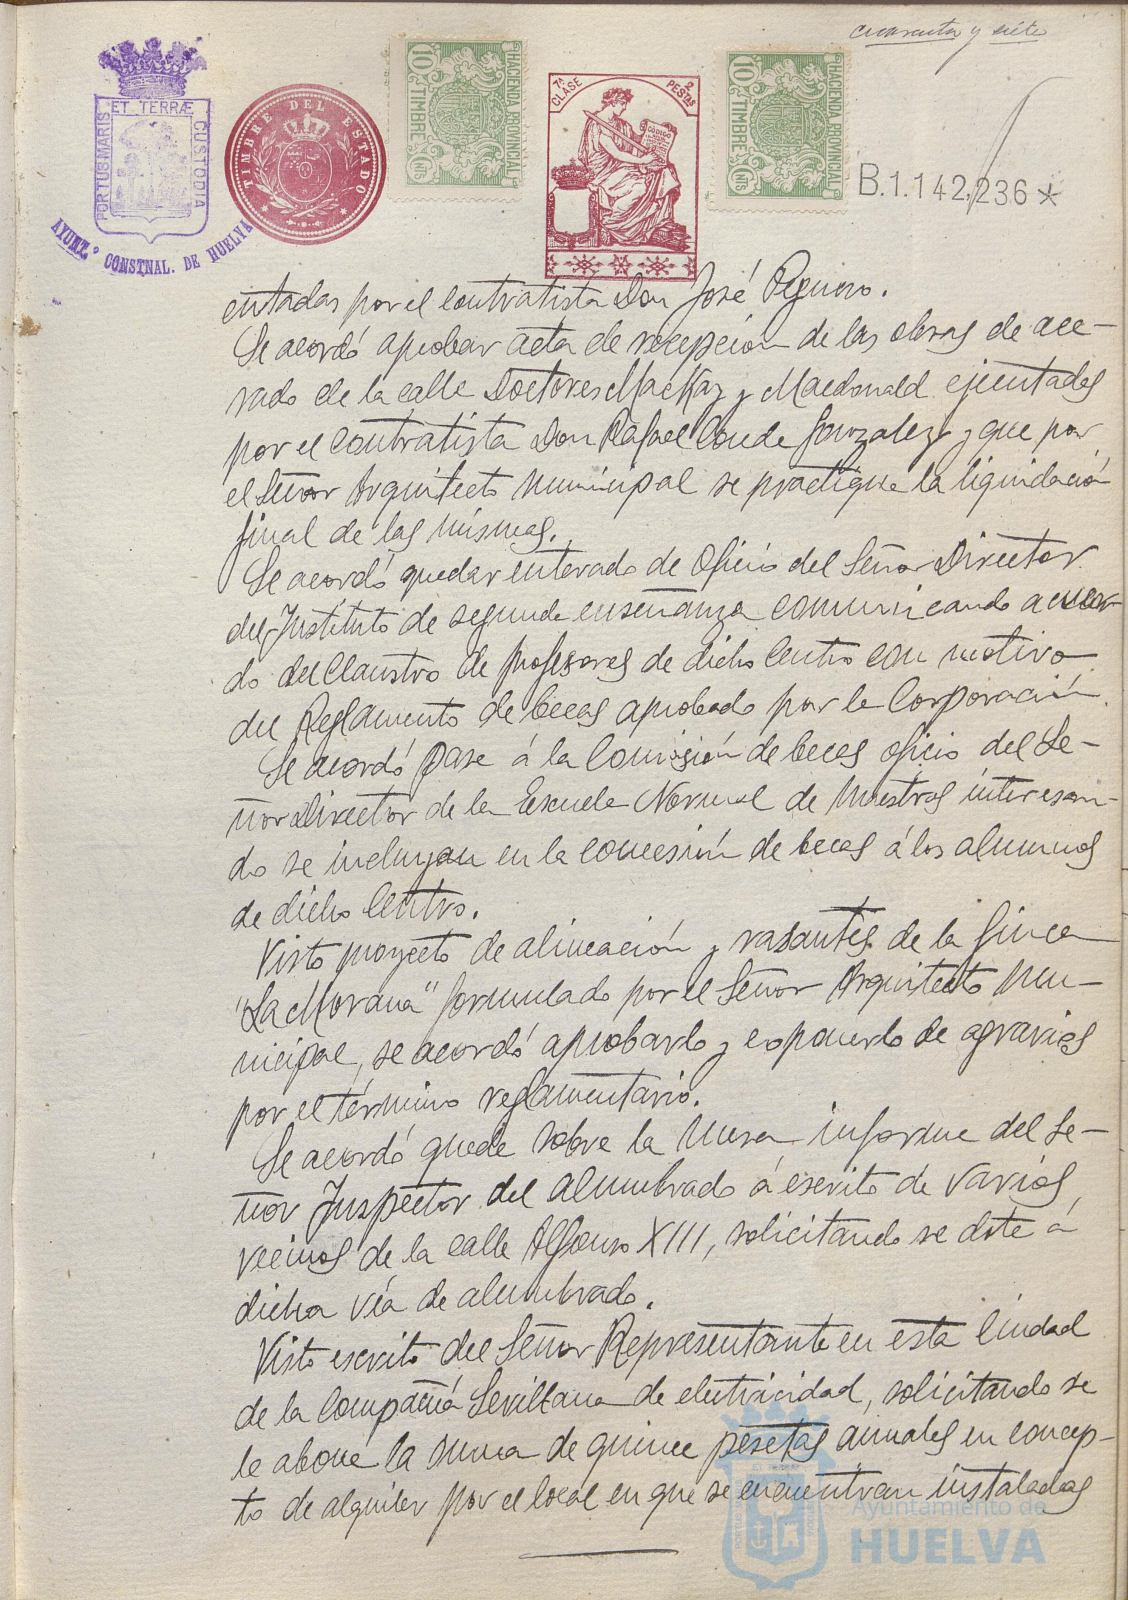 cuarenta y siete
PORTUS MARIS ET TERRÆ CUSTODIA
AYUNT.º CONSTNAL. DE HUELVA
TIMBRE DEL ESTADO
10 TIMBRE HACIENDA PROVINCIAL Cts.
7ª CLASE 2 PESTAS
CÓDIGO
10 TIMBRE HACIENDA PROVINCIAL Cts.
B.1.142,236*
cutadas por el contratista Don José Peguero.
Se acordó aprobar acta de recepción de las obras de ace-
rado de la calle Doctores MacKay y Macdonald ejecutadas
por el contratista Don Rafael Conde González y que por
el Señor Arquitecto municipal se practique la liquidación
final de las mismas.
Se acordó quedar enterado de Oficio del Señor Director
del Instituto de segunda enseñanza comunicando acuer-
do del Claustro de profesores de dicho Centro con motivo
del Reglamento de becas aprobado por la Corporación.
Se acordó pase á la Comisión de becas oficio del Se-
ñor Director de la Escuela Normal de Maestros interesan-
do se incluyan en la concesión de becas á los alumnos
de dicho Centro.
Visto proyecto de alineación y rasantes de la finca
"La Morana" formulado por el Señor Arquitecto Mu-
nicipal, se acordó aprobarlo y exponerlo de agravios
por el término reglamentario.
Se acordó quede sobre la Mesa informe del Se-
ñor Inspector del alumbrado á escrito de varios
vecinos de la calle Alfonso XIII, solicitando se dote á
dicha vía de alumbrado.
Visto escrito del Señor Representante en esta Ciudad
de la Compañía Sevillana de electricidad, solicitando se
le abone la suma de quince pesetas anuales en concep-
to de alquiler por el local en que se encuentran instalados
Ayuntamiento de
HUELVA